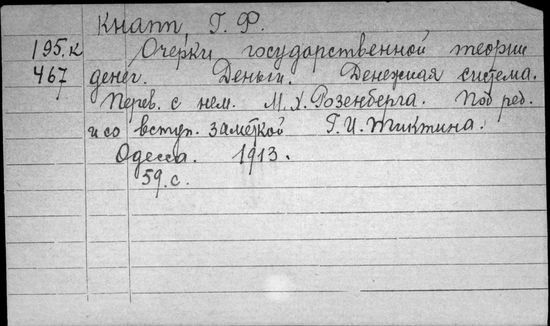 Кнапп, Г. Ф.
195.к Очерки государственной теории
467 денег. Деньги. Денежная система.
Перев. с нем. М. Х. Розенберга. Под ред.
и со вступ. заметкой Г. И. Тиктина.
Одесса. 1913.
59. с.